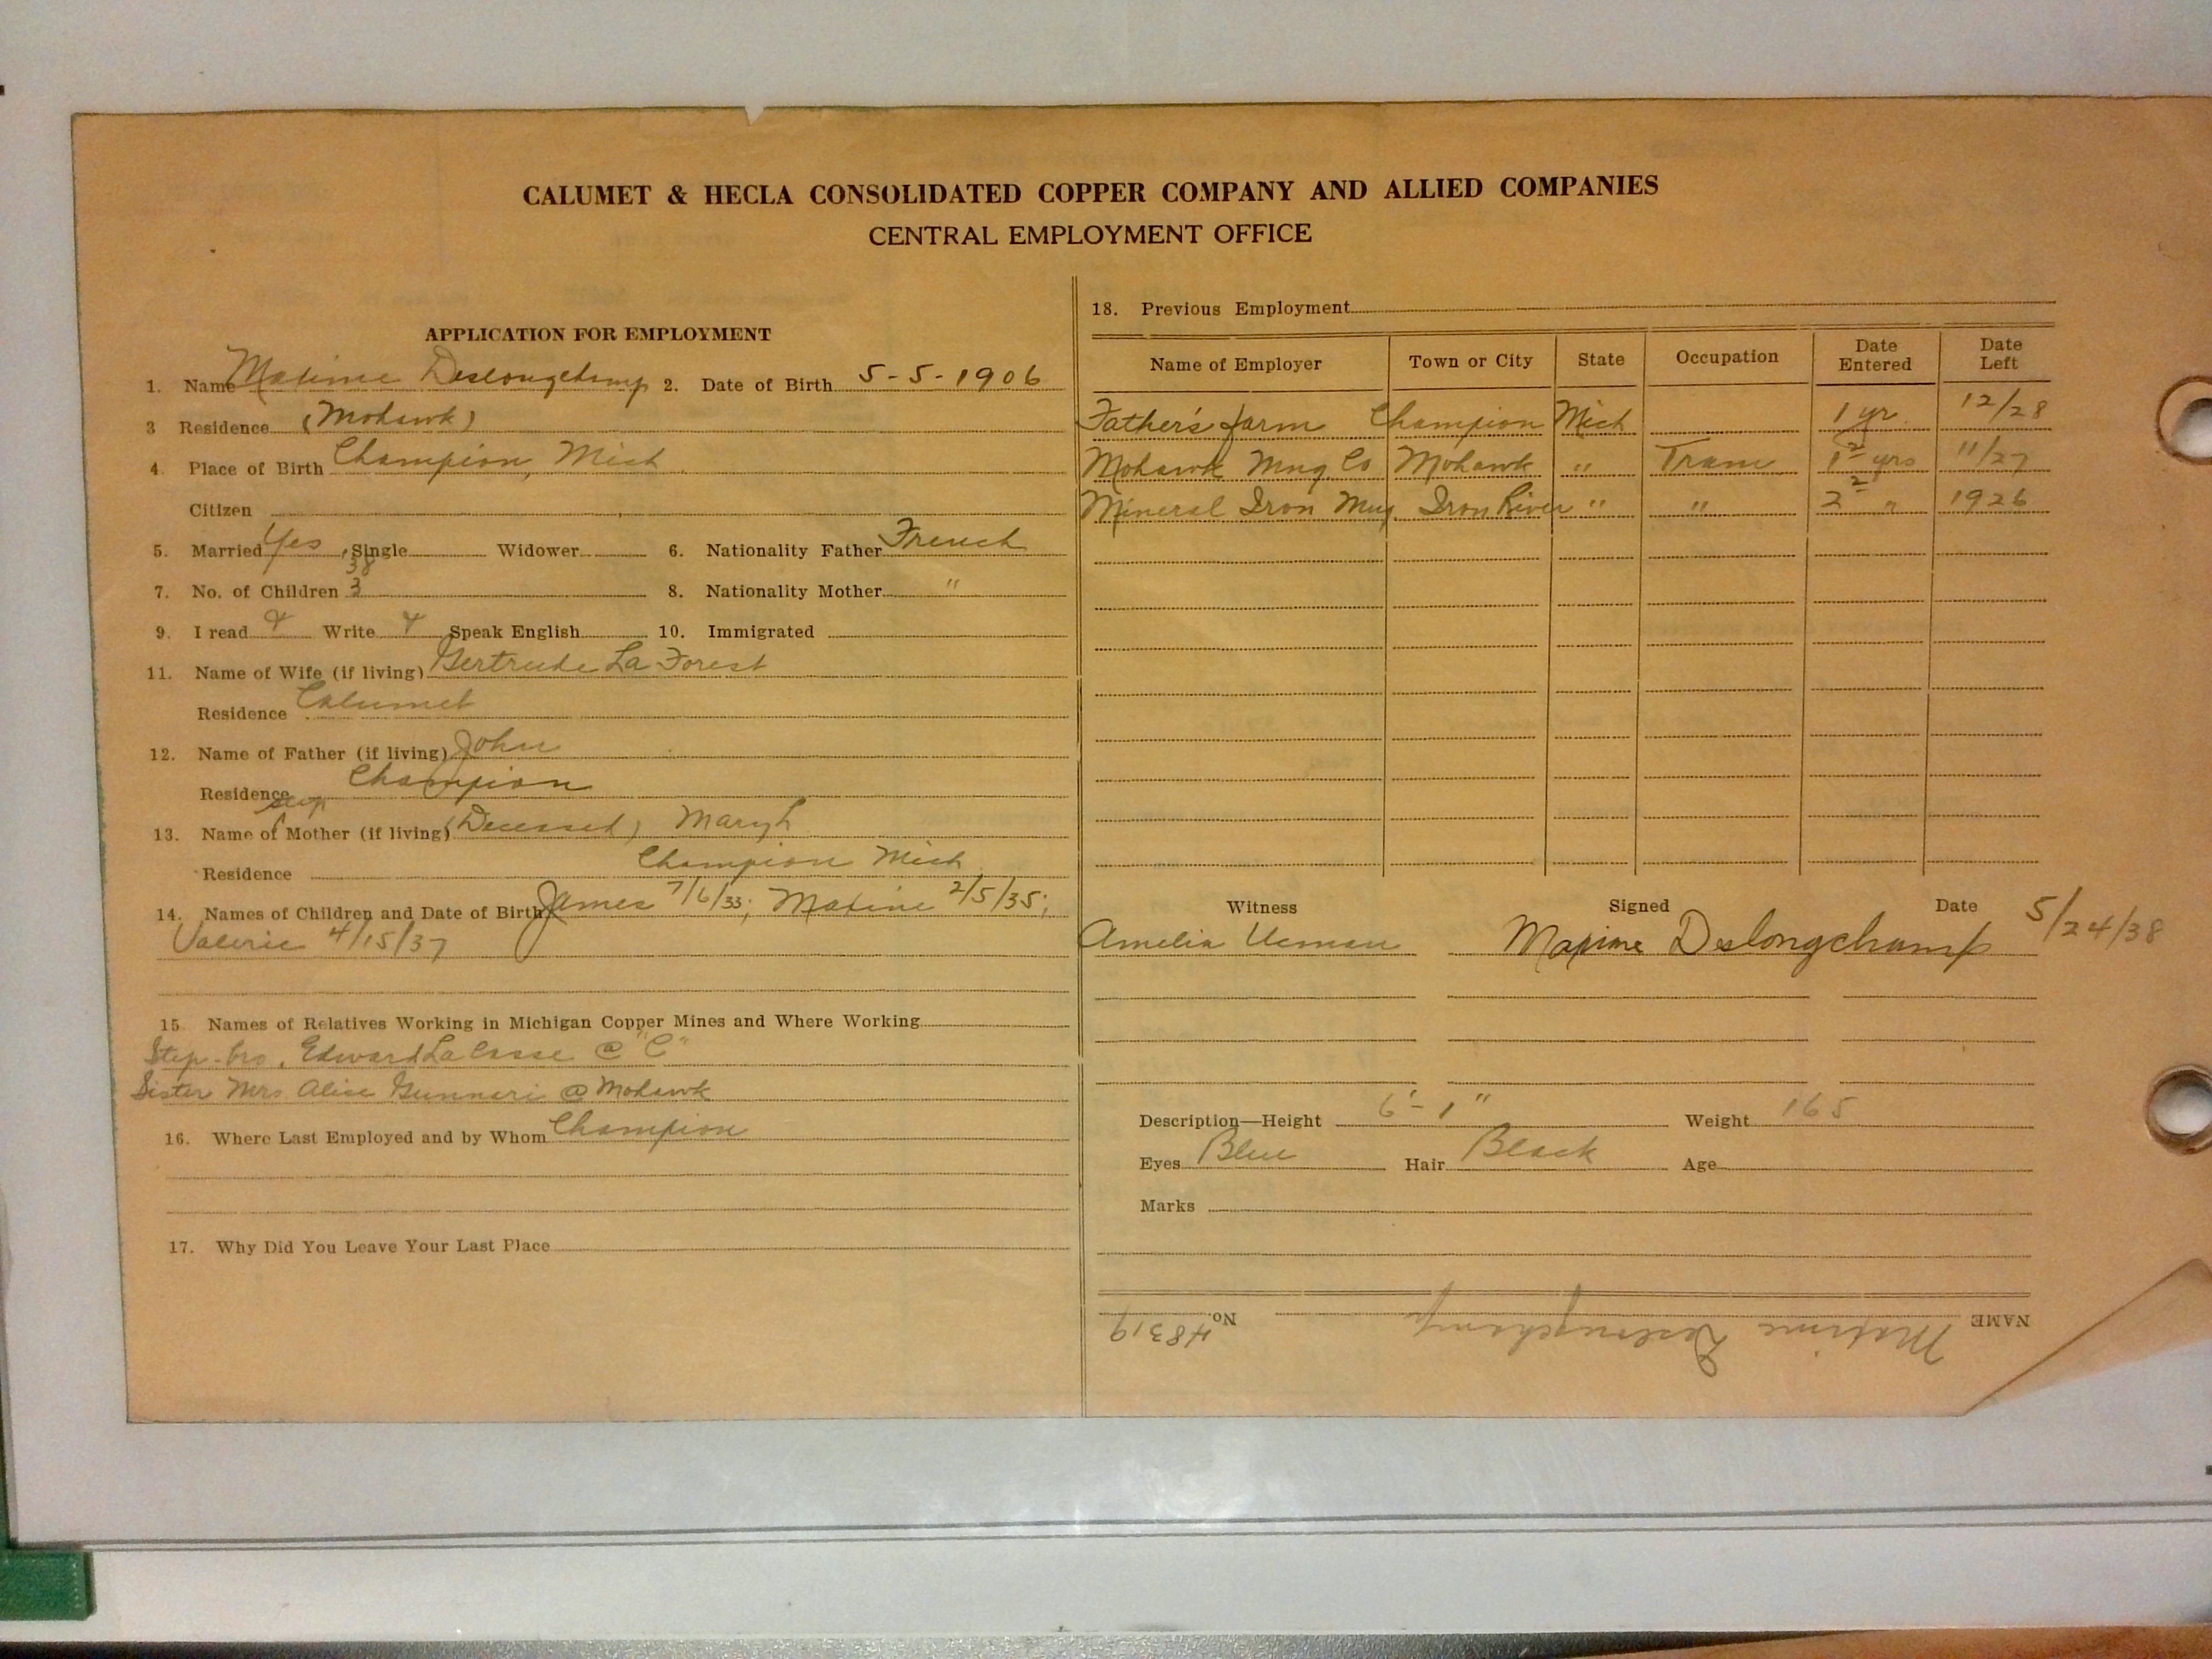 CALUMET & HECLA CONSOLIDATED COPPER COMPANY AND ALLIED COMPANIES
CENTRAL EMPLOYMENT OFFICE
APPLICATION FOR EMPLOYMENT
1. Name Maxime Deslongchamp 2. Date of Birth 5-5-1906
3 Residence (Mohawk)
4. Place of Birth Champion, Mich
Citizen
5. Married Yes, Single Widower 6. Nationality Father French
38
7. No. of Children 3 8. Nationality Mother "
9. I read 4 Write 4 Speak English 10. Immigrated
11. Name of Wife (if living) Gertrude La Forest
Residence Calumet
12. Name of Father (if living) John
Residence Champion
step
13. Name of Mother (if living) (Deceased) Mary L
Residence Champion Mich
14. Names of Children and Date of Birth James 7/6/33; Maxine 2/5/35;
Valerie 4/15/37
15. Names of Relatives Working in Michigan Copper Mines and Where Working
Step-bro, Edward La Casse @ "C"
Sister Mrs Alice Gunnari @ Mohawk
16. Where Last Employed and by Whom Champion
17. Why Did You Leave Your Last Place
18. Previous Employment
Name of Employer Town or City State Occupation Date Entered Date Left
Father's farm Champion Mich 1 yr. 12/28
Mohawk Mng Co Mohawk " Tram 1 2 yrs 11/27
Mineral Iron Mng. Iron River " " 2 2 " 1926
Witness Signed Date 5/24/38
Amelia Maxime Deslongchamp
Description—Height 6'-1" Weight 165
Eyes Blue Hair Black Age
Marks
NAME Maxime Deslongchamp No. 48319